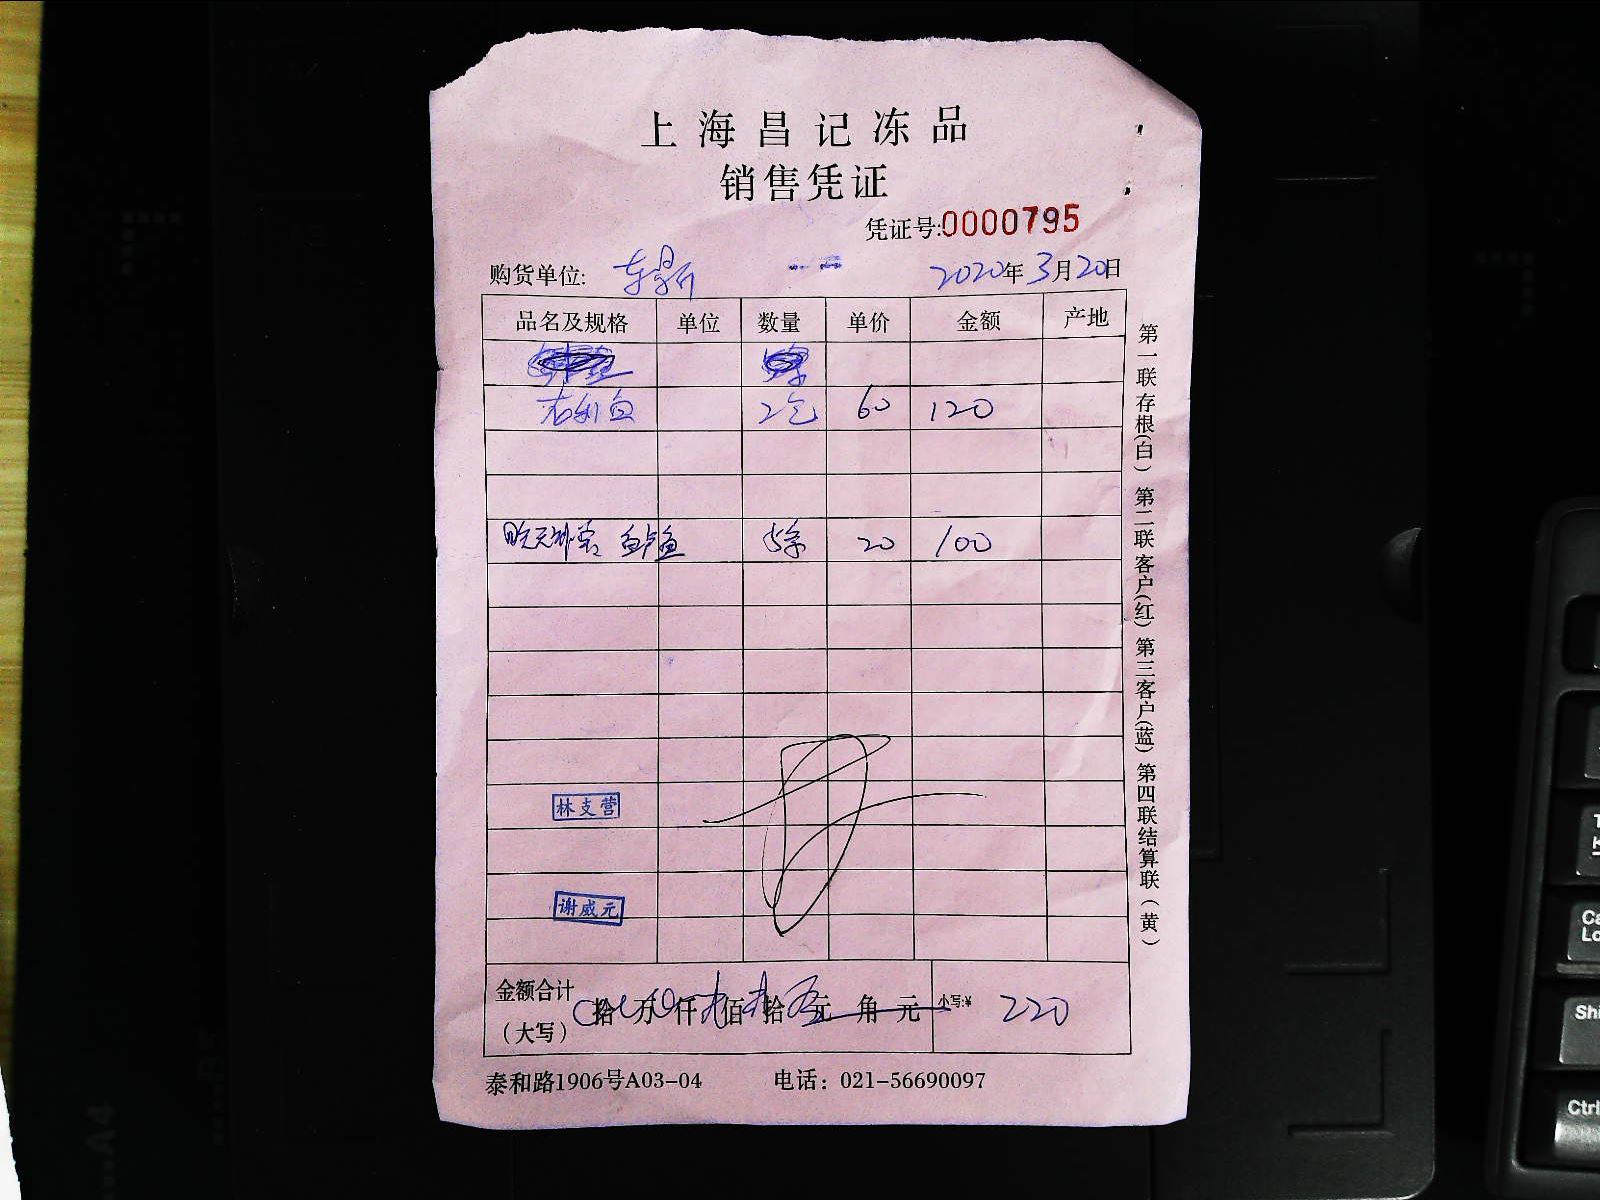 上海昌记冻品
销售凭证
凭证号:0000795
购货单位: 2020年3月20日
品名及规格 单位 数量 单价 金额 产地
2包 60 120
鲈鱼 5条 20 100
林支营
谢威元
金额合计（大写） 拾 万 仟 佰 拾 元 角 元 小写:¥ 220
泰和路1906号A03-04 电话：021-56690097
第一联存根(白) 第二联客户(红) 第三客户(蓝) 第四联结算联(黄)
T
Ca
Lo
Shi
Ctrl
A4